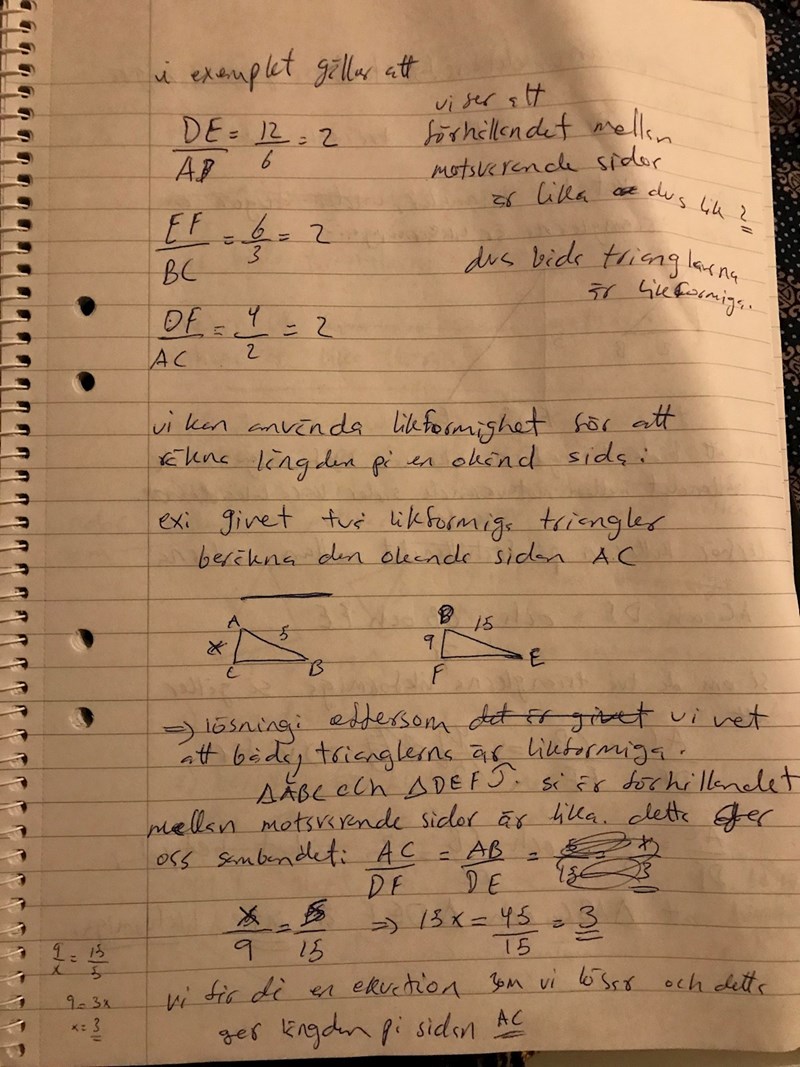 i exemplet gäller att
DE/AB = 12/6 = 2
vi ser att
förhållandet mellan
motsvarande sidor
är lika dvs lik 2
EF/BC = 6/3 = 2
dvs båda trianglarna
är likformiga.
DF/AC = 4/2 = 2
vi kan använda likformighet för att
räkna längden på en okänd sida:
ex: givet två likformiga triangler
beräkna den okända sidan AC
A 5 x C B
D 15 9 F E
=> lösning: eftersom det är givet vi vet
att båda trianglerna är likformiga.
△ABC och △DEF så är förhållandet
mellan motsvarande sidor är lika. detta ger
oss sambandet: AC/DF = AB/DE =
x/9 = 5/15 => 15x = 45/15 = 3
9/x = 15/5
9 = 3x
x = 3
vi får då en ekvation som vi löser och detta
ger längden på sidan AC